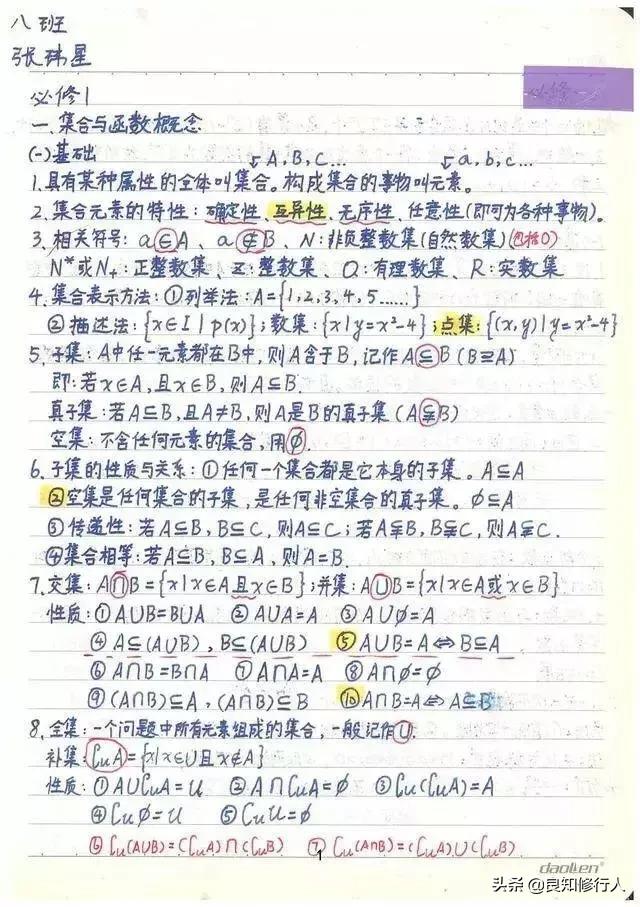 八班
张玮星
必修1
必修一
一.集合与函数概念
(一)基础 A,B,C… a,b,c…
1.具有某种属性的全体叫集合。构成集合的事物叫元素。
2.集合元素的特性:确定性、互异性、无序性、任意性(即可为各种事物)。
3.相关符号:a∈A、a∉B、N:非负整数集(自然数集)(包括0)
N*或N+:正整数集、Z:整数集、Q:有理数集、R:实数集
4.集合表示方法:①列举法:A={1,2,3,4,5……}
②描述法:{x∈I|p(x)};数集:{x|y=x²-4};点集:{(x,y)|y=x²-4}
5.子集:A中任一元素都在B中,则A含于B,记作A⊆B(B⊇A)
即:若x∈A,且x∈B,则A⊆B.
真子集:若A⊆B,且A≠B,则A是B的真子集(A⫋B)
空集:不含任何元素的集合,用∅.
6.子集的性质与关系:①任何一个集合都是它本身的子集。A⊆A
②空集是任何集合的子集,是任何非空集合的真子集。∅⊆A
③传递性:若A⊆B,B⊆C,则A⊆C;若A⫋B,B⫋C,则A⫋C.
④集合相等:若A⊆B,B⊆A,则A=B.
7.交集:A∩B={x|x∈A且x∈B};并集:A∪B={x|x∈A或x∈B}
性质:①A∪B=B∪A ②A∪A=A ③A∪∅=A
④A⊆(A∪B),B⊆(A∪B) ⑤A∪B=A⇔B⊆A
⑥A∩B=B∩A ⑦A∩A=A ⑧A∩∅=∅
⑨(A∩B)⊆A,(A∩B)⊆B ⑩A∩B=A⇔A⊆B
8.全集:一个问题中所有元素组成的集合,一般记作U.
补集:∁uA={x|x∈U且x∉A}
性质:①A∪∁uA=U ②A∩∁uA=∅ ③∁u(∁uA)=A
④∁u∅=U ⑤∁uU=∅
⑥∁u(A∪B)=(∁uA)∩(∁uB) ⑦∁u(A∩B)=(∁uA)∪(∁uB)
1
daolen
头条@良知修行人